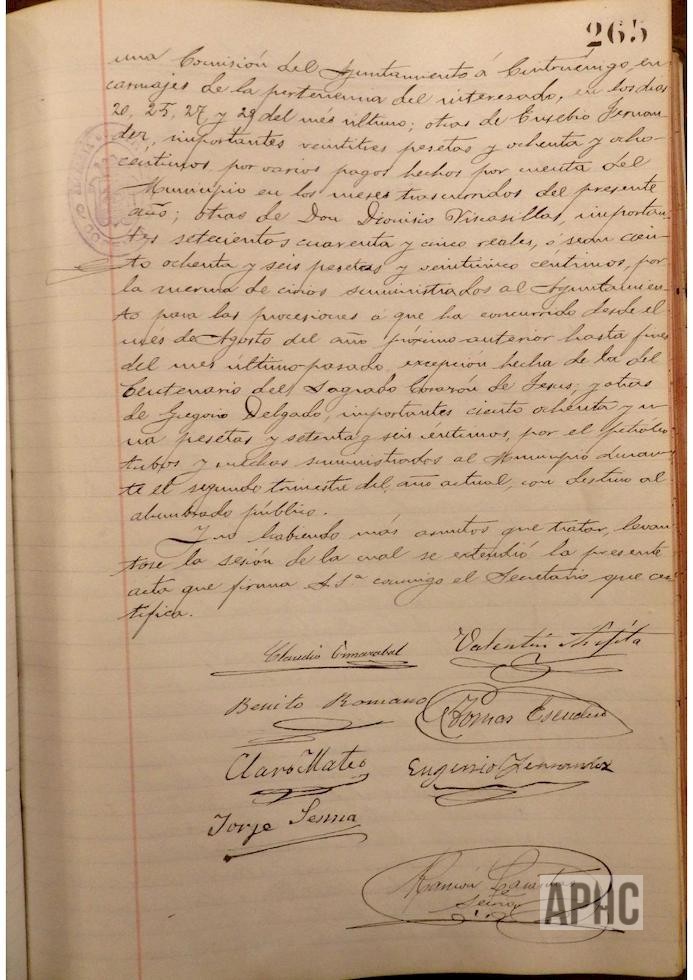 265
una Comisión del Ayuntamiento á Cintruénigo, en
carruajes de la pertenencia del interesado, en los dias
20, 25, 27 y 29 del mes último; otras de Eusebio Fernan-
dez, importantes veintitres pesetas y ochenta y ocho
céntimos por varios pagos hechos por cuenta del
Municipio en los meses trascurridos del presente
año; otras de Don Dionisio Viscasillas, importan-
tes setecientos cuarenta y cinco reales, ó sean cien-
to ochenta y seis pesetas y veinticinco centimos, por
la merma de cirios suministrados al Ayuntamien-
to para las procesiones á que ha concurrido desde el
més de Agosto del año próximo anterior hasta fines
del mes último pasado, excepción hecha de la del
Centenario del Sagrado Corazón de Jesus; y otras
de Gregorio Delgado, importantes ciento ochenta y u-
na pesetas y setenta y seis céntimos, por el petroleo
tubos y mechas suministrados al Municipio duran-
te el segundo trimestre del año actual, con destino al
alumbrado público.
Y no habiendo más asuntos que tratar, levan-
tose la sesión de la cual se extendió la presente
acta que firma S.Sª conmigo el Secretario que cer-
tifica.
Claudio Valentin
Benito Romano Tomas Escudero
Claro Mateo Eugenio Fernandez
Jorje Sesma
Ramón
APHC